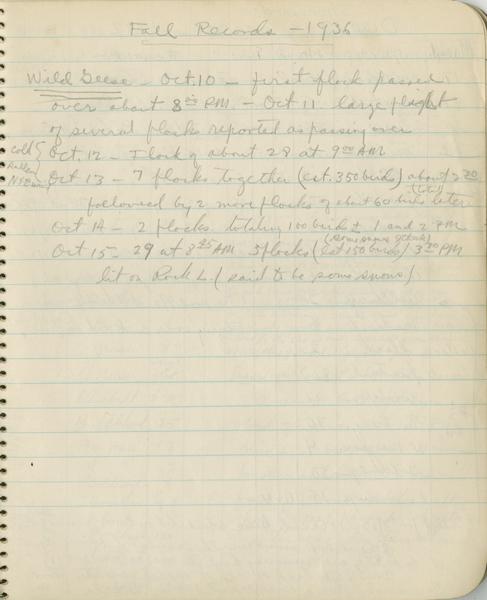 Fall Records - 1936
Wild Geese - Oct. 10 - first flock passed
over about 8 PM. - Oct 11 large flight
of several flocks reported as passing over
cold Oct. 12 - Flock of about 28 at 9 00 AM
Oct 13 - 7 flocks together (est. 350 birds) about
followed by 2 more flocks of about 60 birds later
(total)
Oct 14 - 2 flocks totaling 100 birds ± 1 and 2 PM
Oct 15 - 29 at 8 45 AM 5 flocks (est 150 birds) 3 30 PM
lit on Rock L. (said to be some snows)